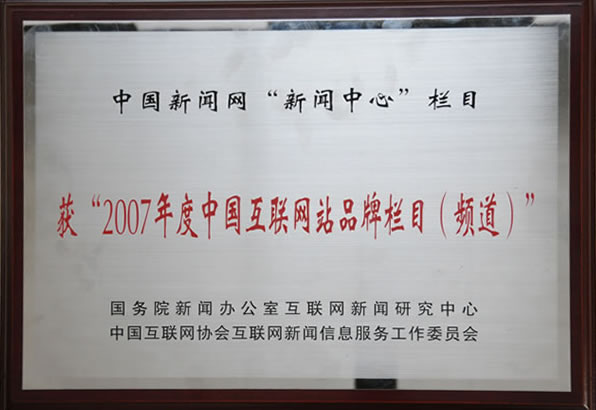 中国新闻网“新闻中心”栏目
获“2007年度中国互联网站品牌栏目（频道）”
国务院新闻办公室互联网新闻研究中心
中国互联网协会互联网新闻信息服务工作委员会